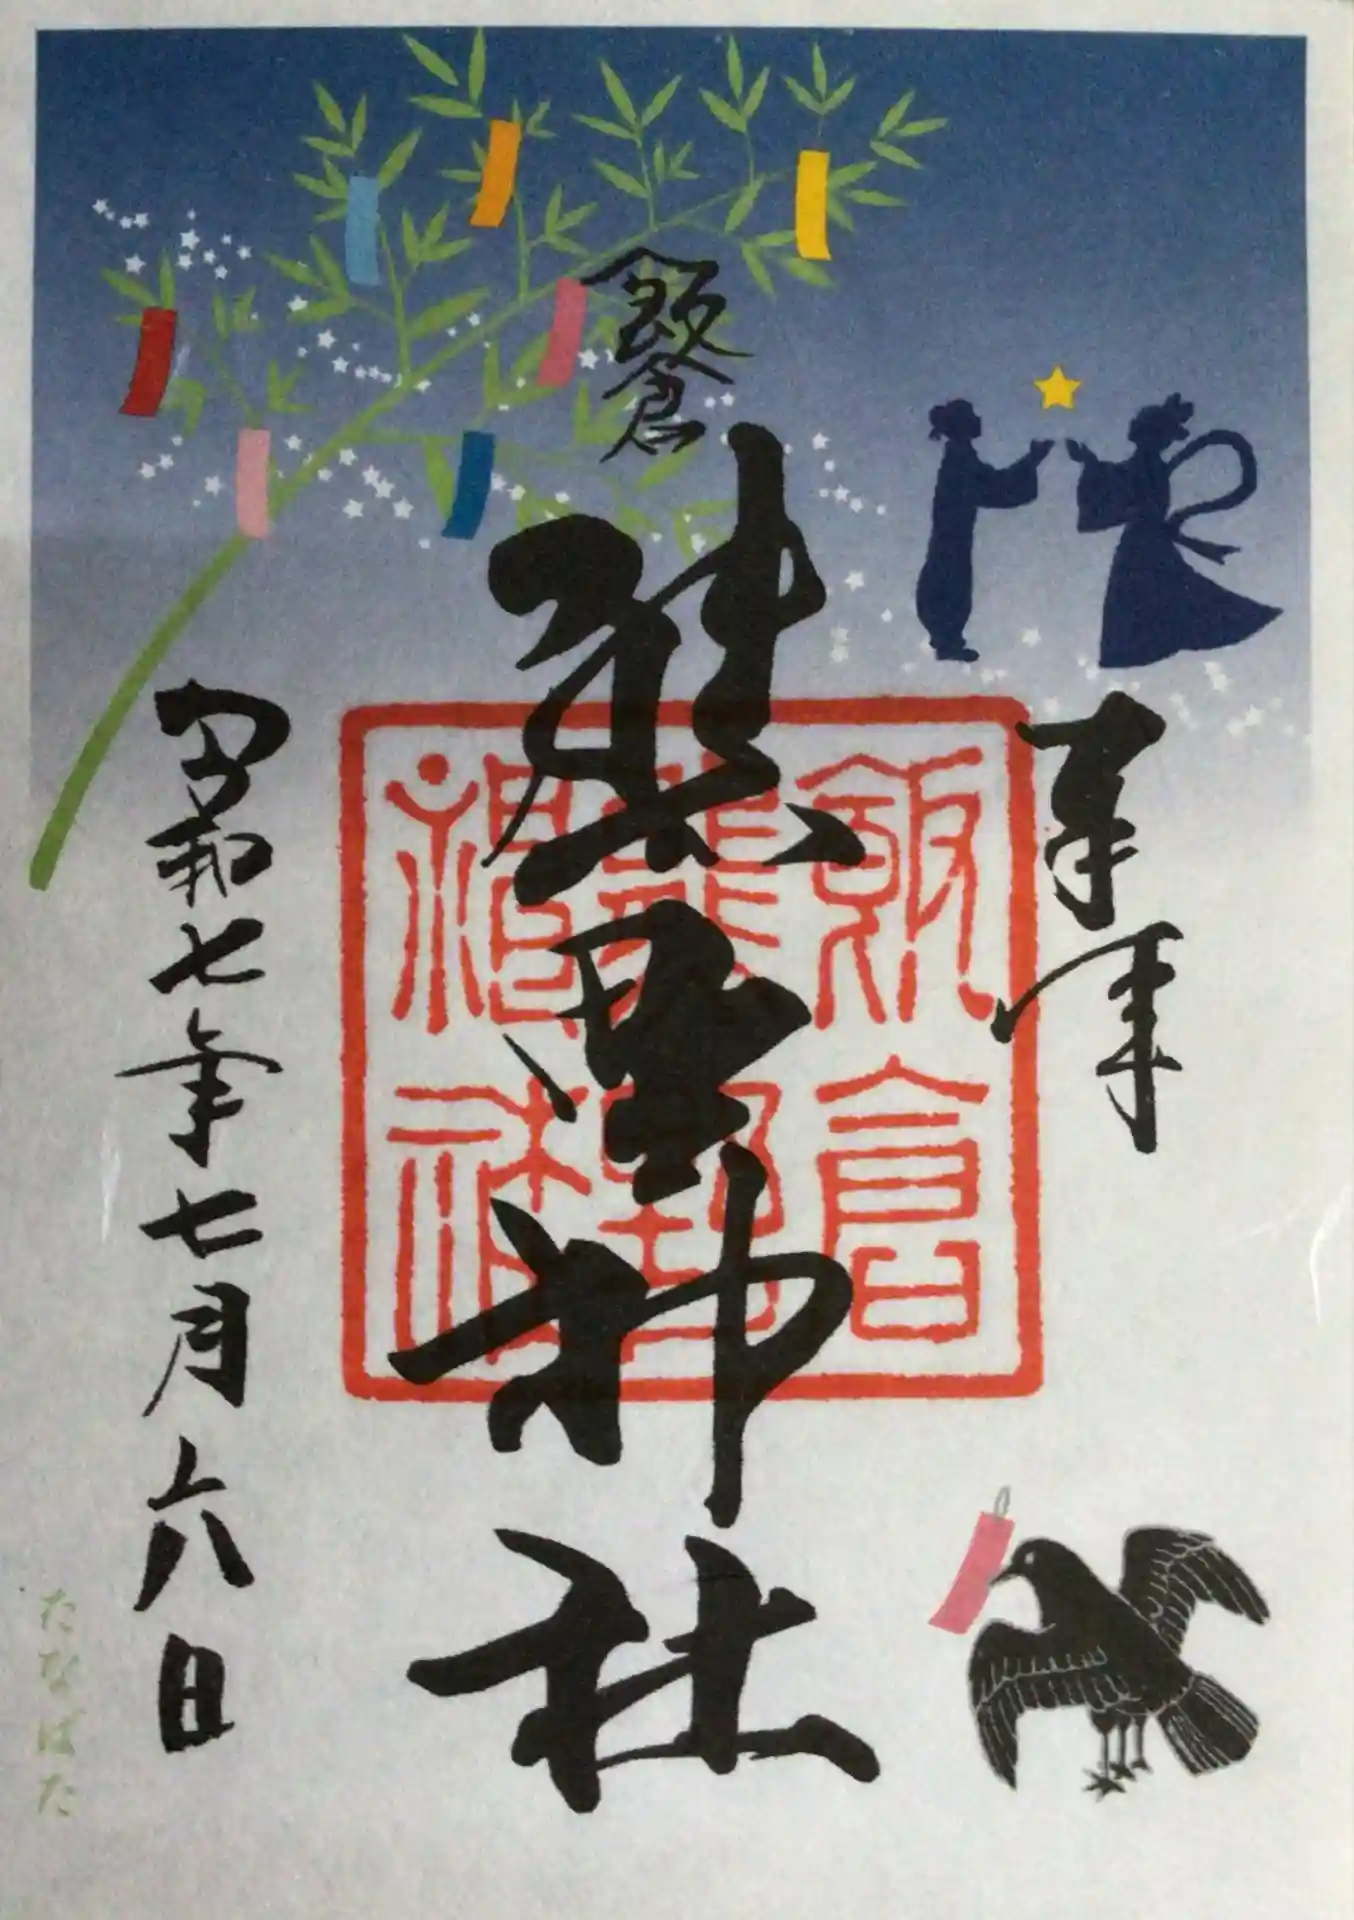 奉拝
飯倉
熊野神社
飯倉
熊野
神社
令和七年七月六日
たなばた